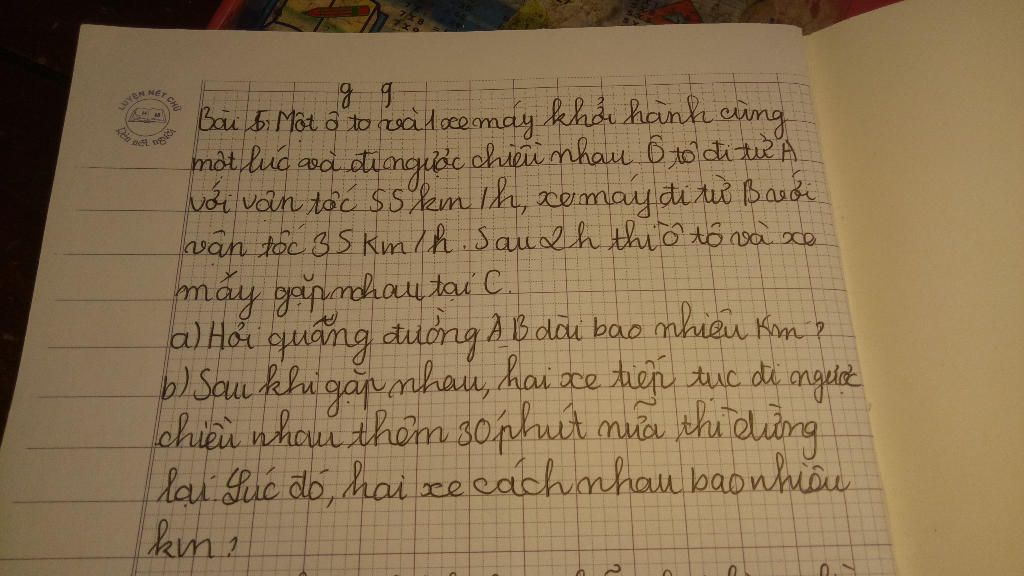 LUYỆN NÉT CHỮ
RÈN NẾT NGƯỜI
g g
Bài 5: Một ô tô và 1 xe máy khởi hành cùng
một lúc và đi ngược chiều nhau. Ô tô đi từ A
với vận tốc 55 km/h, xe máy đi từ B với
vận tốc 35 Km/h. Sau 2h thì ô tô và xe
máy gặp nhau tại C.
a) Hỏi quãng đường AB dài bao nhiêu Km?
b) Sau khi gặp nhau, hai xe tiếp tục đi ngược
chiều nhau thêm 30 phút nữa thì dừng
lại. Lúc đó, hai xe cách nhau bao nhiêu
km?